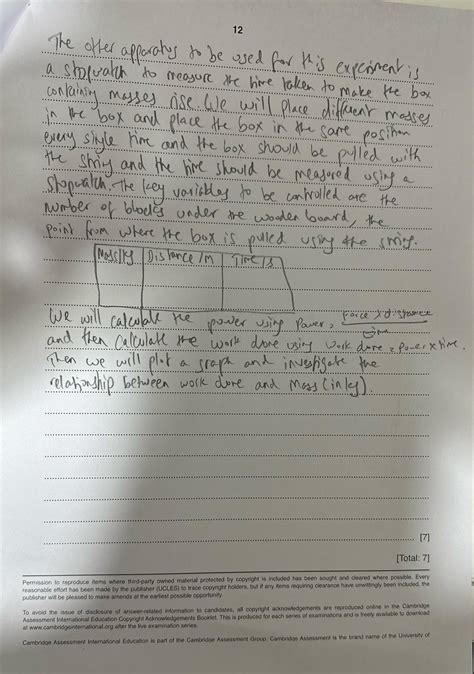 12
The other apparatus to be used for this experiment is
a stopwatch to measure the time taken to make the box
containing masses rise. We will place different masses
in the box and place the box in the same position
every single time and the box should be pulled with
the string and the time should be measured using a
stopwatch. The key variables to be controlled are the
number of blocks under the wooden board, the
point from where the box is pulled using the string.
Mass/kg Distance/m Time/s
We will calculate the power using Power, force x distance
time
and then calculate the work done using work done = power x time.
Then we will plot a graph and investigate the
relationship between work done and Mass (in kg).
[7]
[Total: 7]
Permission to reproduce items where third-party owned material protected by copyright is included has been sought and cleared where possible. Every
reasonable effort has been made by the publisher (UCLES) to trace copyright holders, but if any items requiring clearance have unwittingly been included, the
publisher will be pleased to make amends at the earliest possible opportunity.
To avoid the issue of disclosure of answer-related information to candidates, all copyright acknowledgements are reproduced online in the Cambridge
Assessment International Education Copyright Acknowledgements Booklet. This is produced for each series of examinations and is freely available to download
at www.cambridgeinternational.org after the live examination series.
Cambridge Assessment International Education is part of the Cambridge Assessment Group. Cambridge Assessment is the brand name of the University of